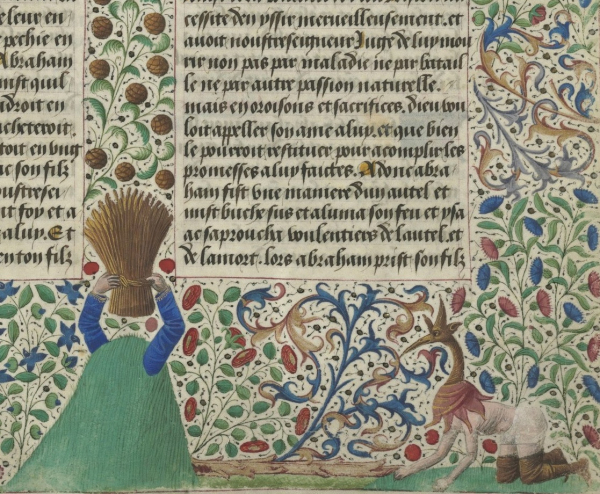 leur en
pechie en
Abraham
mist quil
droit en
acheteroit.
tout en vng
e son filz
nostresei
nt foy et a
aluy. Et
enton filz
cessite den yssir merueilleusement. et
auoit nostreseigneur Iuge de luy mou
rir non pas par maladie ne par batail
le ne par autre passion naturelle.
mais en oroisons et sacrifices. dieu vou
loit appeller son ame a luy. et que bien
le pourroit restituer pour acomplir les
promesses a luy faictes. Adonc abra
ham fist vne maniere dun autel et
mist busche sus et aluma son feu et ysa
ac saproucha voulentiers de lautel et
de la mort. lors abraham prist son filz